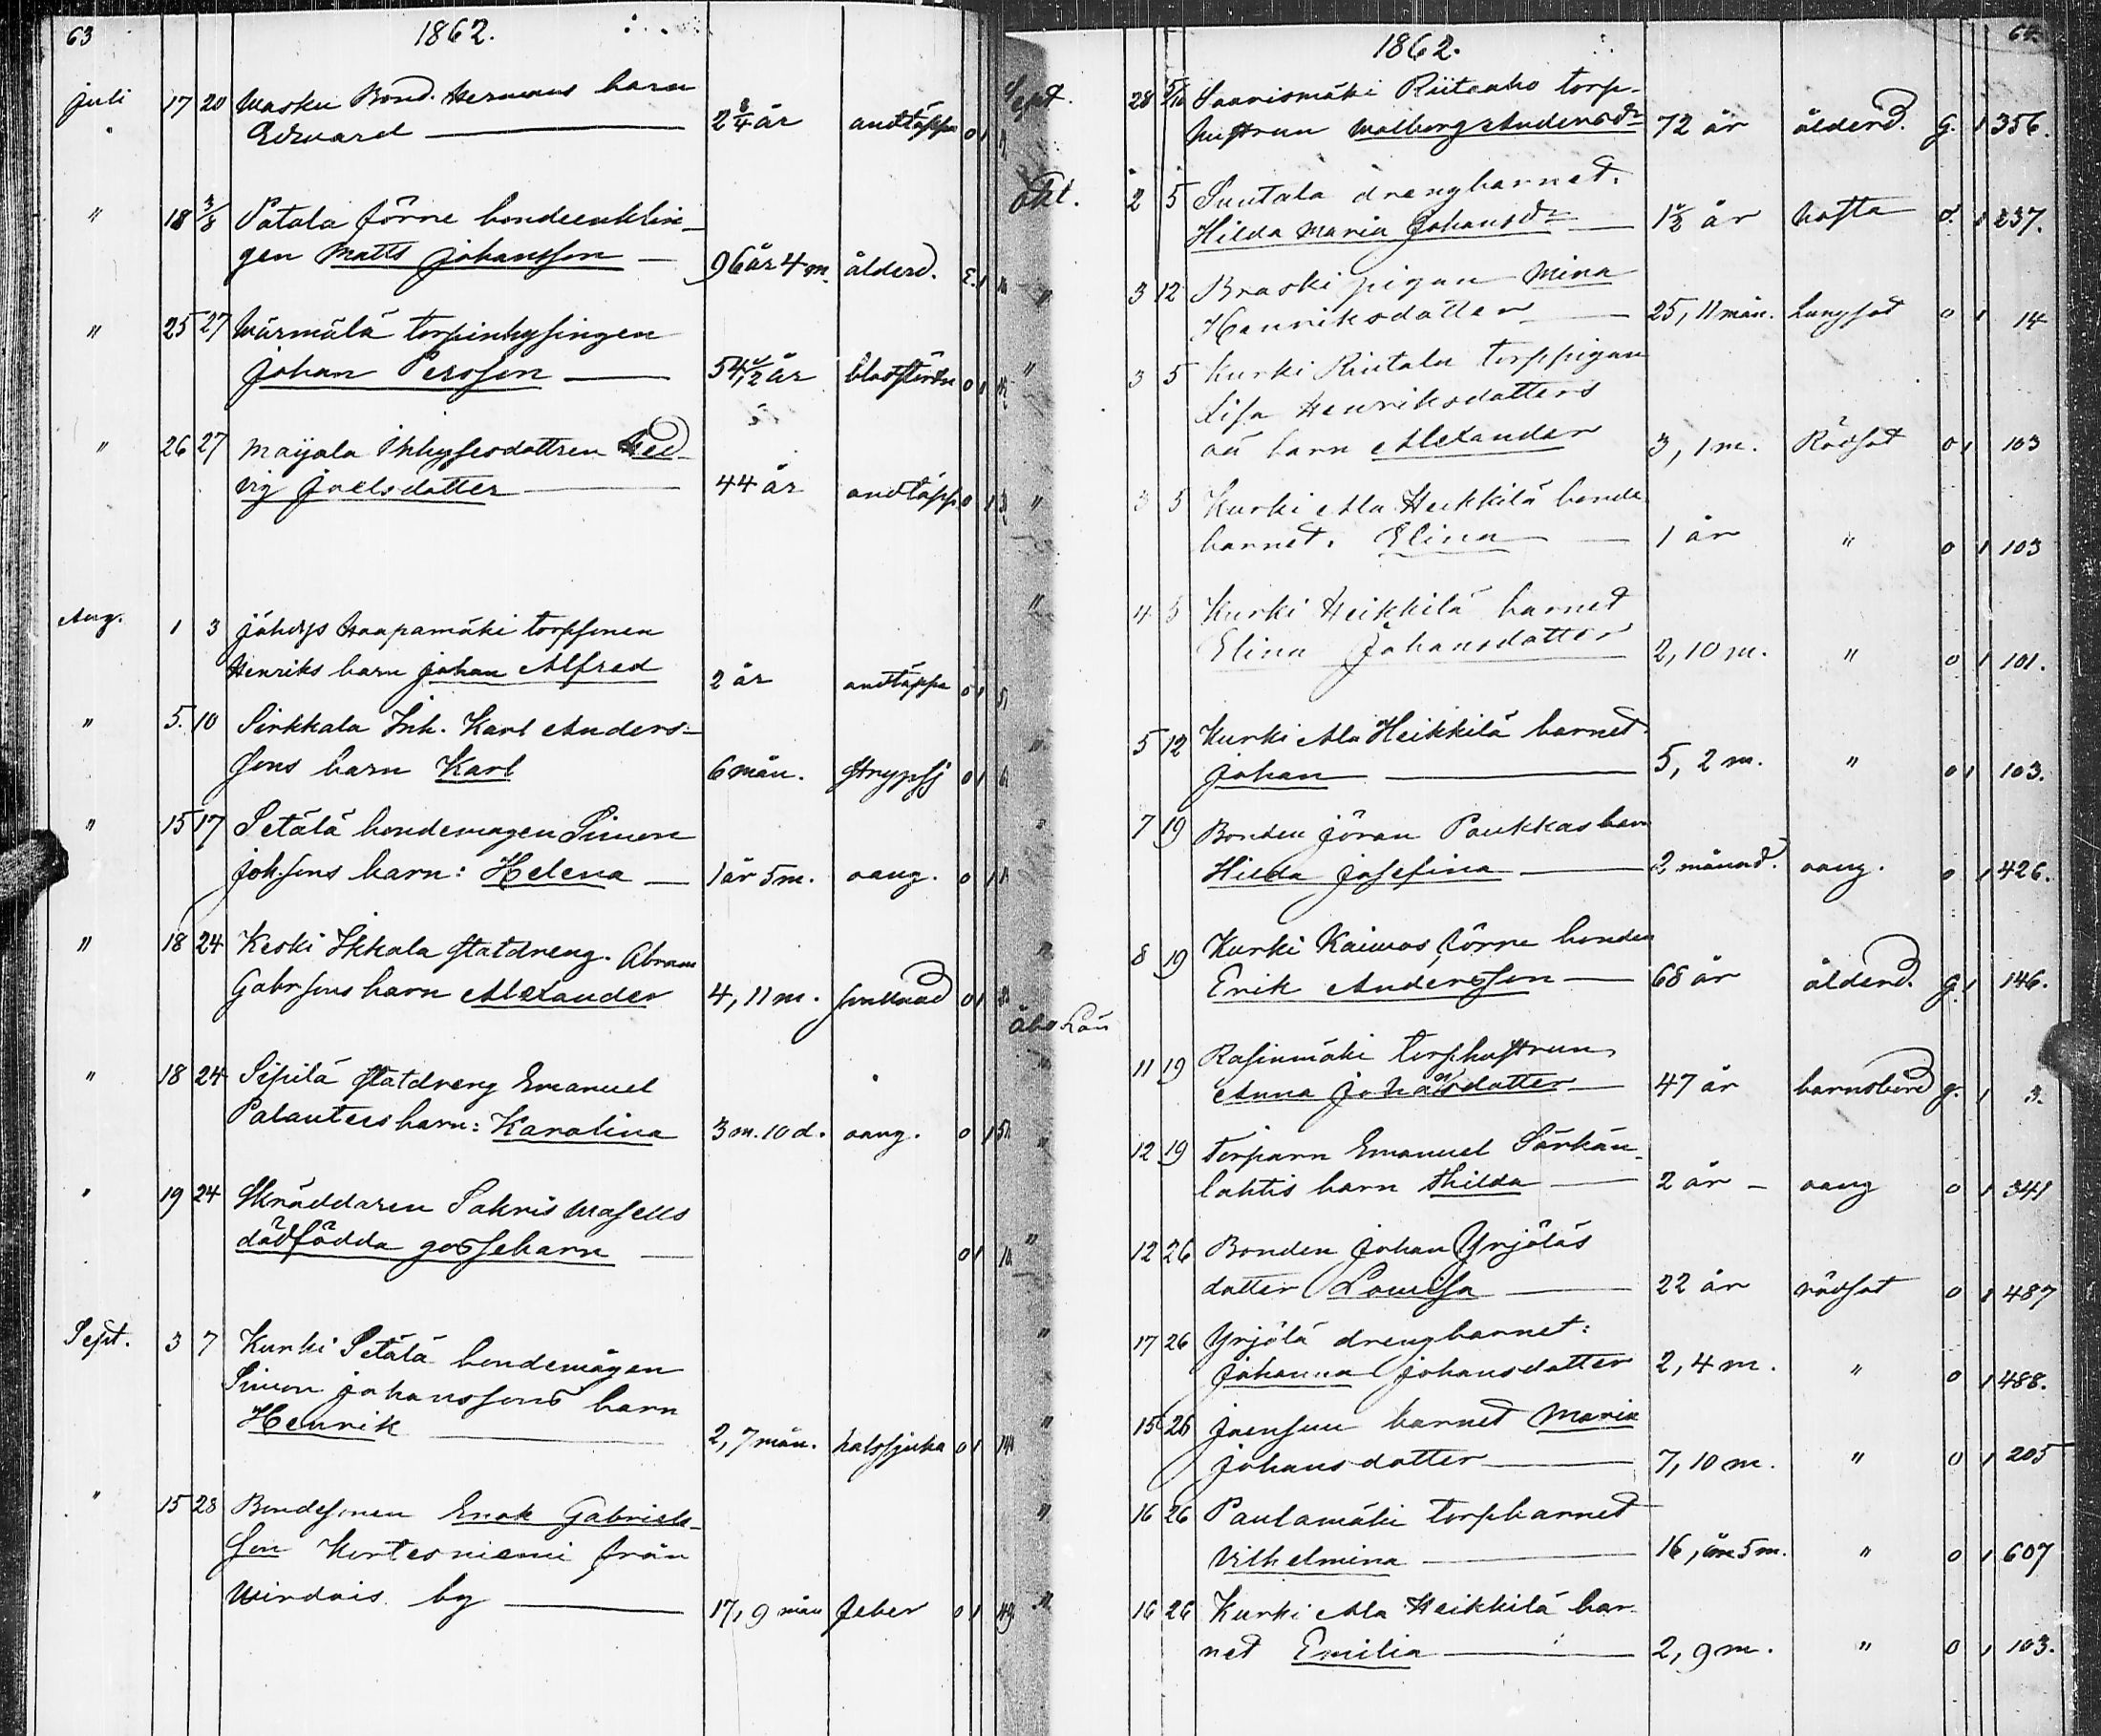 63
1862.
Juli 17 20 Wasku Bond. Hermans barn
" Edvard 2 3/4 år andtäppa 0 1
" 18 3/8 Patala förre bondeenklin-
gen Matts Johansson 96 år 4 m. ålderd. E. 1
" 25 27 Wärmälä torpinhysingen
Johan Persson 54 1/2 år blodstörtn 0 1
" 26 27 Maijala Inhysesdottren Hed-
vig Joelsdotter 44 år andtäpp 0 1
Aug. 1 3 Haapamäki torpsonen
Henriks barn Johan Alfred 2 år andtäppa 0 1
" 5. 10 Sirkkala Inh. Karl Anders-
sons barn Karl 6 mån. strypsj 0 1
" 15 17 Setälä bondemågen Simon
Johssons barn: Helena 1 år 5 m. oang. 0 1
" 18 24 Keski Ikkala statdreng. Abram
Gabrsons barn Alexander 4, 11 m. 0 1
" 18 24 Sipilä statdreng Emanuel
Palanters barn: Karolina 3 m. 10 d. oang. 0 1
" 19 24 Skräddaren Sakris Wasells
dödfödda gossebarn 0 1
Sept. 3 7 Kurki Setälä bondemågen
Simon Johanssons barn
Henrik 2, 7 mån. halssjuka 0 1
" 15 28 Bondesonen Enok Gabriels-
son Kortesniemi från
Wirdois by 17, 9 mån feber 0 1
1862.
Sept. 28 5/10 Saarismäki Riiteaho torp-
hustrun Walborg Andersdr 72 år ålderd. G. 1 356.
Okt. 2 5 Suutala drengbarnet.
Hilda Maria Johansdr 1 1/2 år hosta 0. 1 237.
" 3 12 Braski pigan Mina
Henriksdotter 25, 11 mån. Lungsot 0 1 14
" 3 5 Kurki Rintala torppigan
Lisa Henriksdotters
oä barn Alexander 3, 1 m. Rödsot 0 1 103
" 3 5 Kurki Ala Heikkilä bonde
barnet. Elina 1 år " 0 1 103
" 4 5 Kurki Heikkilä barnet
Elina Johansdotter 2, 10 m. " 0 1 101.
" 5 12 Kurki Ala Heikkilä barnet
Johan 5, 2 m. " 0 1 103.
" 7 19 Bonden Jöran Paukkas barn
Hilda Josefina 2 månad. oang. 0 1 426.
" 8 19 Kurki Kaivos förre bonden
Erik Andersson 68 år ålderd. g. 1 146.
Åbo Län
" 11 19 Rasinmäki torphustrun
Anna Johansdotter 47 år barnsbörd g. 1 3.
" 12 19 Torparn Emanuel Särkän-
lahtis barn Hilda 2 år oang 0 1 341
" 12 26 Bonden Johan Yrjöläs
dotter Lowisa 22 år rödsot 0 1 487
" 17 26 Yrjölä drengbarnet:
Johanna Johansdotter 2, 4 m. " 0 1 488.
" 15 26 Joensuu barnet Maria
Johansdotter 7, 10 m. " 0 1 205
" 16 26 Paulamäki torpbarnet
Vilhelmina 16, år 5 m. " 0 1 607
" 16 26 Kurki Ala Heikkilä bar-
net Emilia 2, 9 m. " 0 1 103.